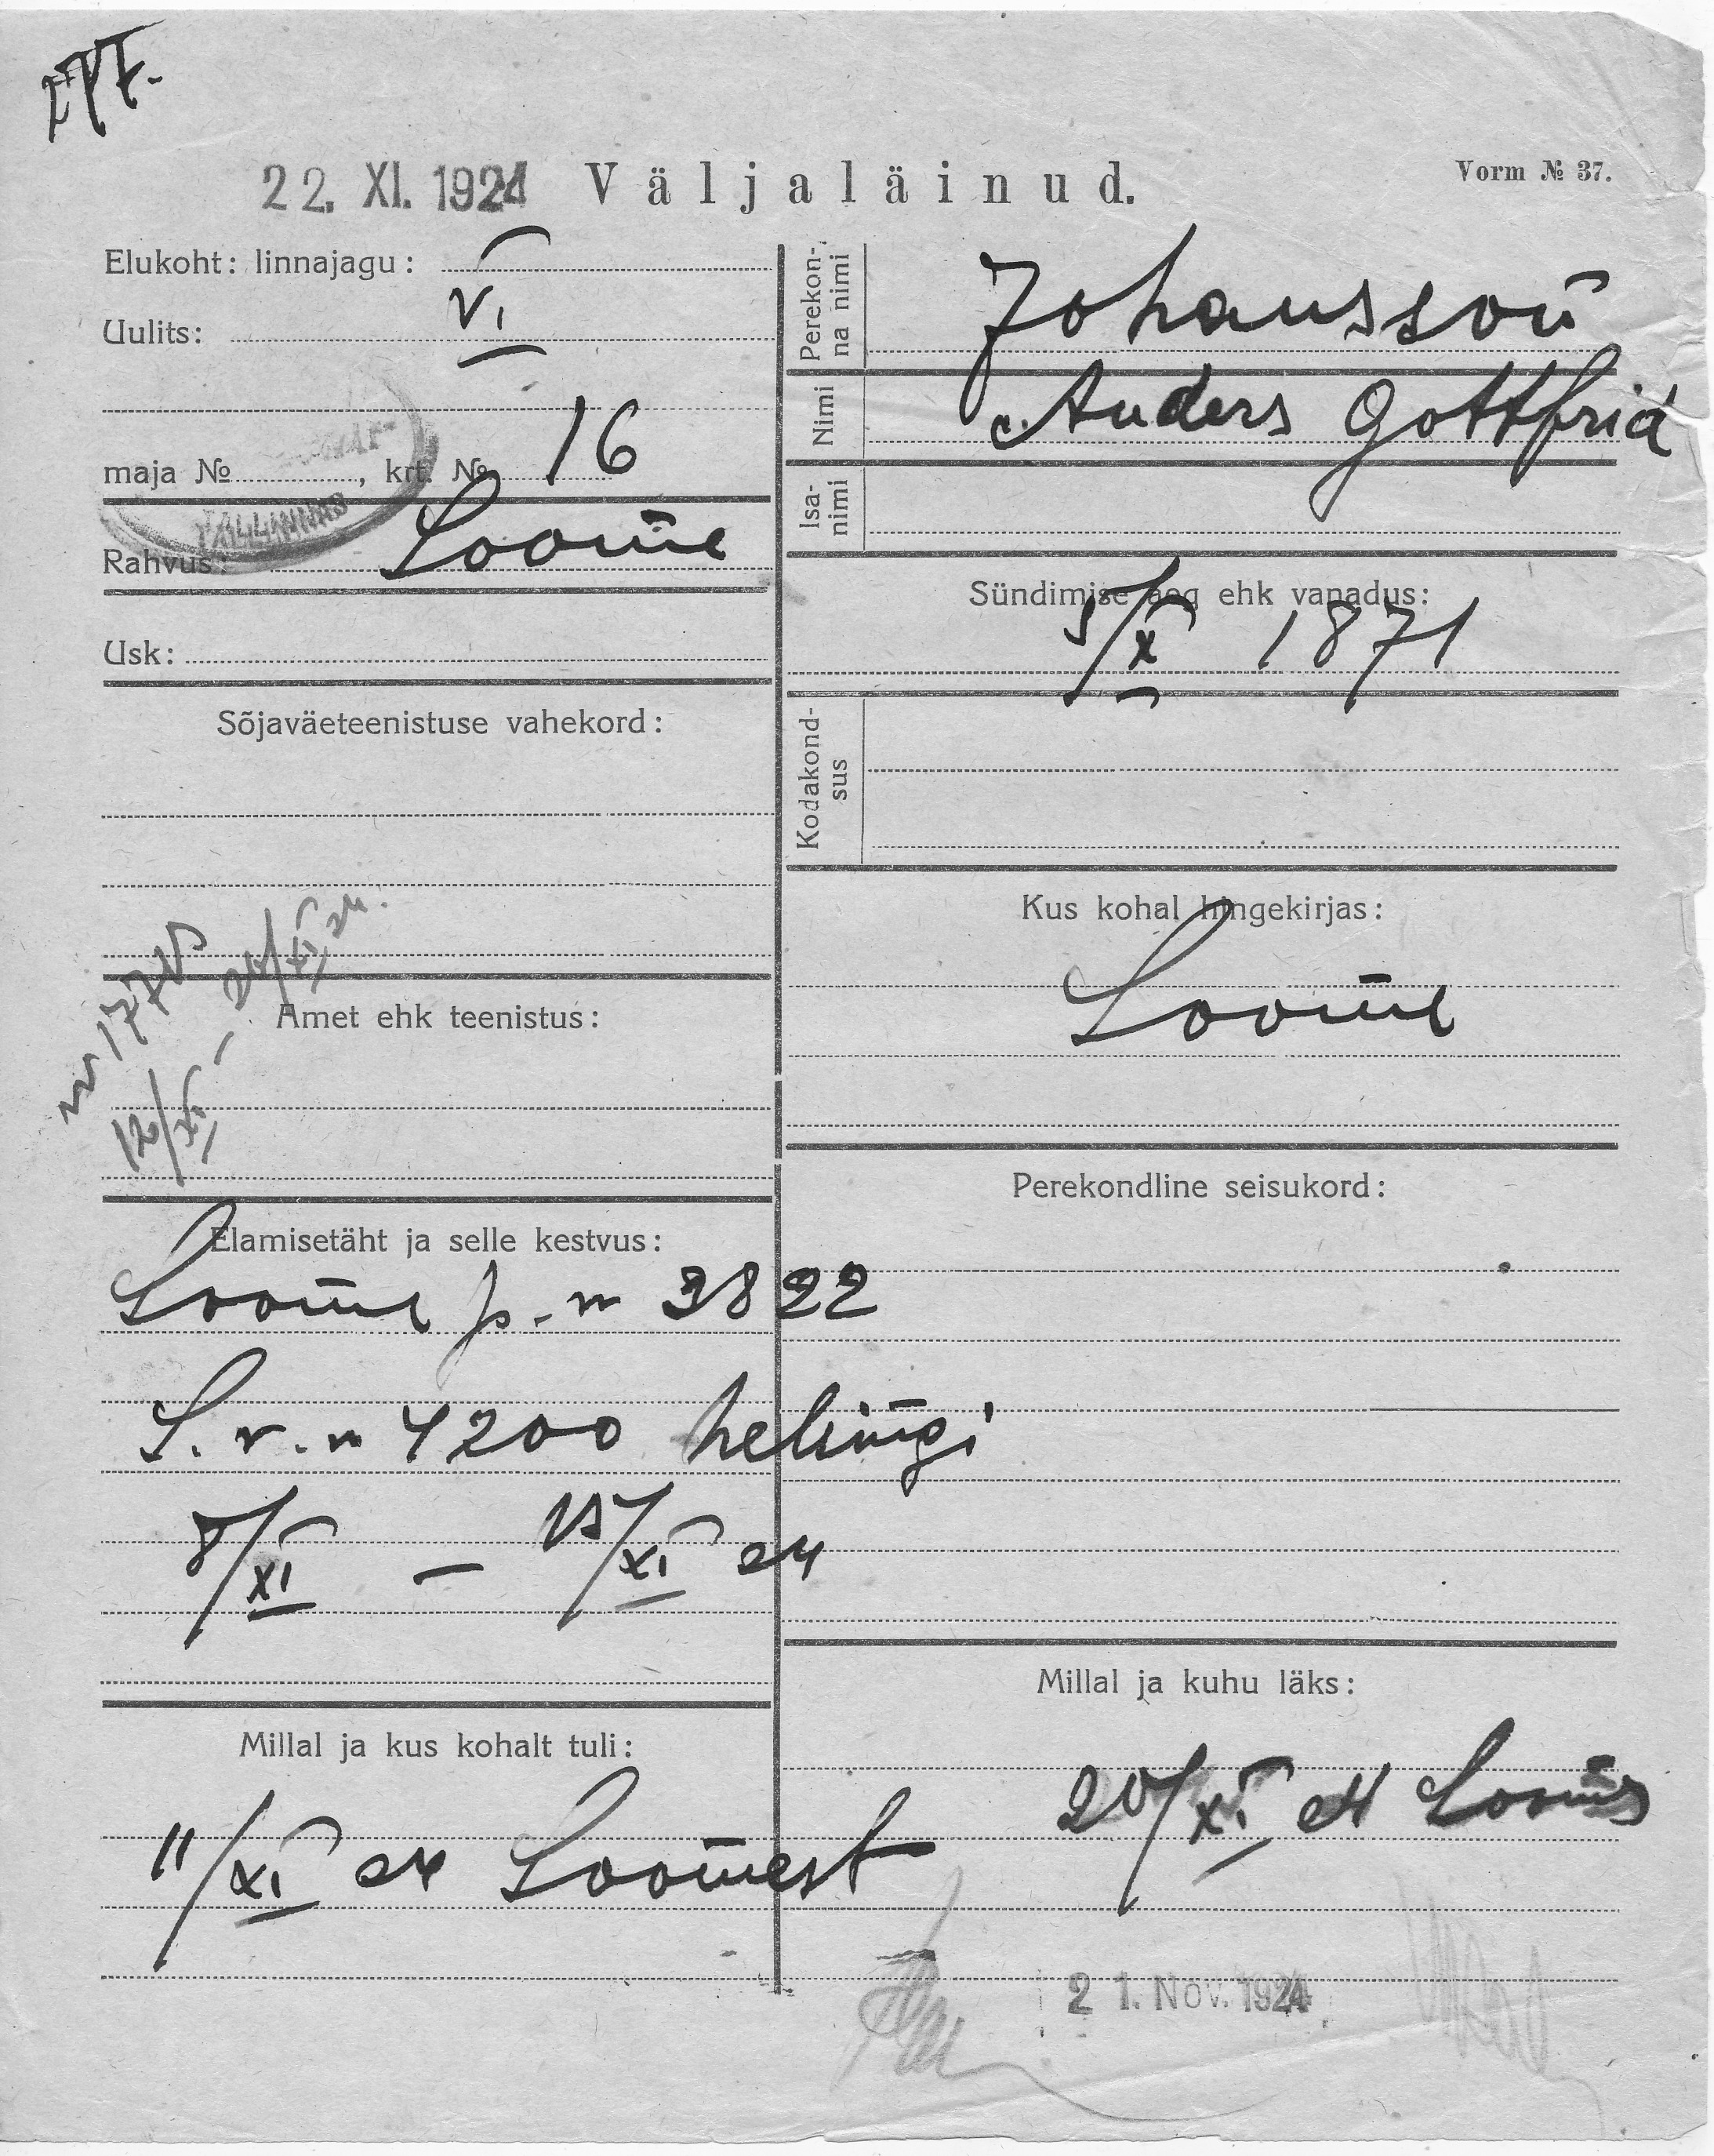 22. XI. 1924 Väljaläinud.
Vorm № 37.
Elukoht: linnajagu:
VI
Uulits:
maja № , krt. № 16
TALLINNAS
Rahvus: Soome
Usk:
Sõjaväeteenistuse vahekord:
Amet ehk teenistus:
12/XI –
Elamisetäht ja selle kestvus:
Soome p. n 3822
S. v. n 4200 helsingi
8/XI – 15/XI 24
Millal ja kus kohalt tuli:
11/XI 24 Soomest
Perekon-
na nimi
Johansson
Nimi
Anders Gottfrid
Isa-
nimi
Sündimise aeg ehk vanadus:
5/X 1871
Kodakond-
sus
Kus kohal hingekirjas:
Soome
Perekondline seisukord:
Millal ja kuhu läks:
20/XI 24 Soome
21. Nov. 1924